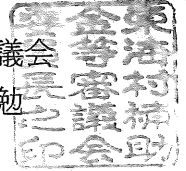 議会
勉
東海村補助
金等審議会
委員長之印